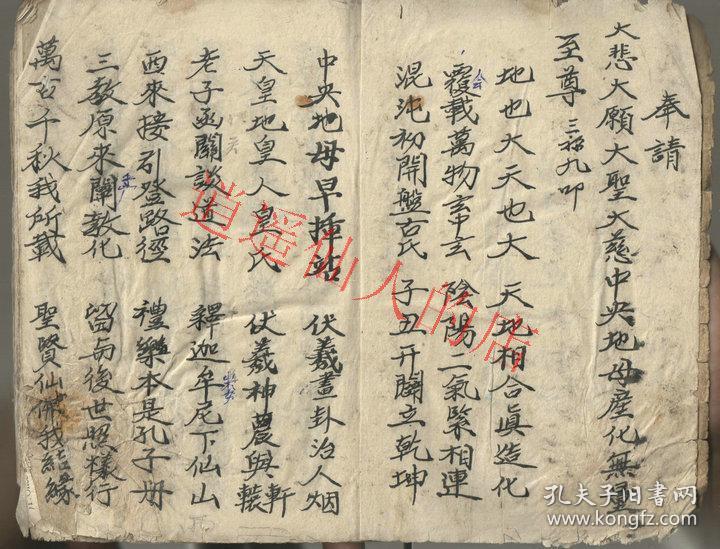 奉請
大悲大願大聖大慈中央地母產化無量
至尊 三招九叩
地也大天也大 天地相合眞造化
覆載萬物
陰陽二氣緊相連
混沌初開盤古氏 子丑开闢立乾坤
中央地母早 站 伏羲畫卦治人烟
天皇地皇人皇氏 伏羲神農與軒轅
老子函關談道法 釋迦牟尼下仙山
西來接引登路徑 禮樂本是孔子毋
三教原來闡教化 留与後世照樣行
萬古千秋我所載 聖賢仙佛我結緣
逍遥仙人的店
孔夫子旧书网
www.kongfz.com